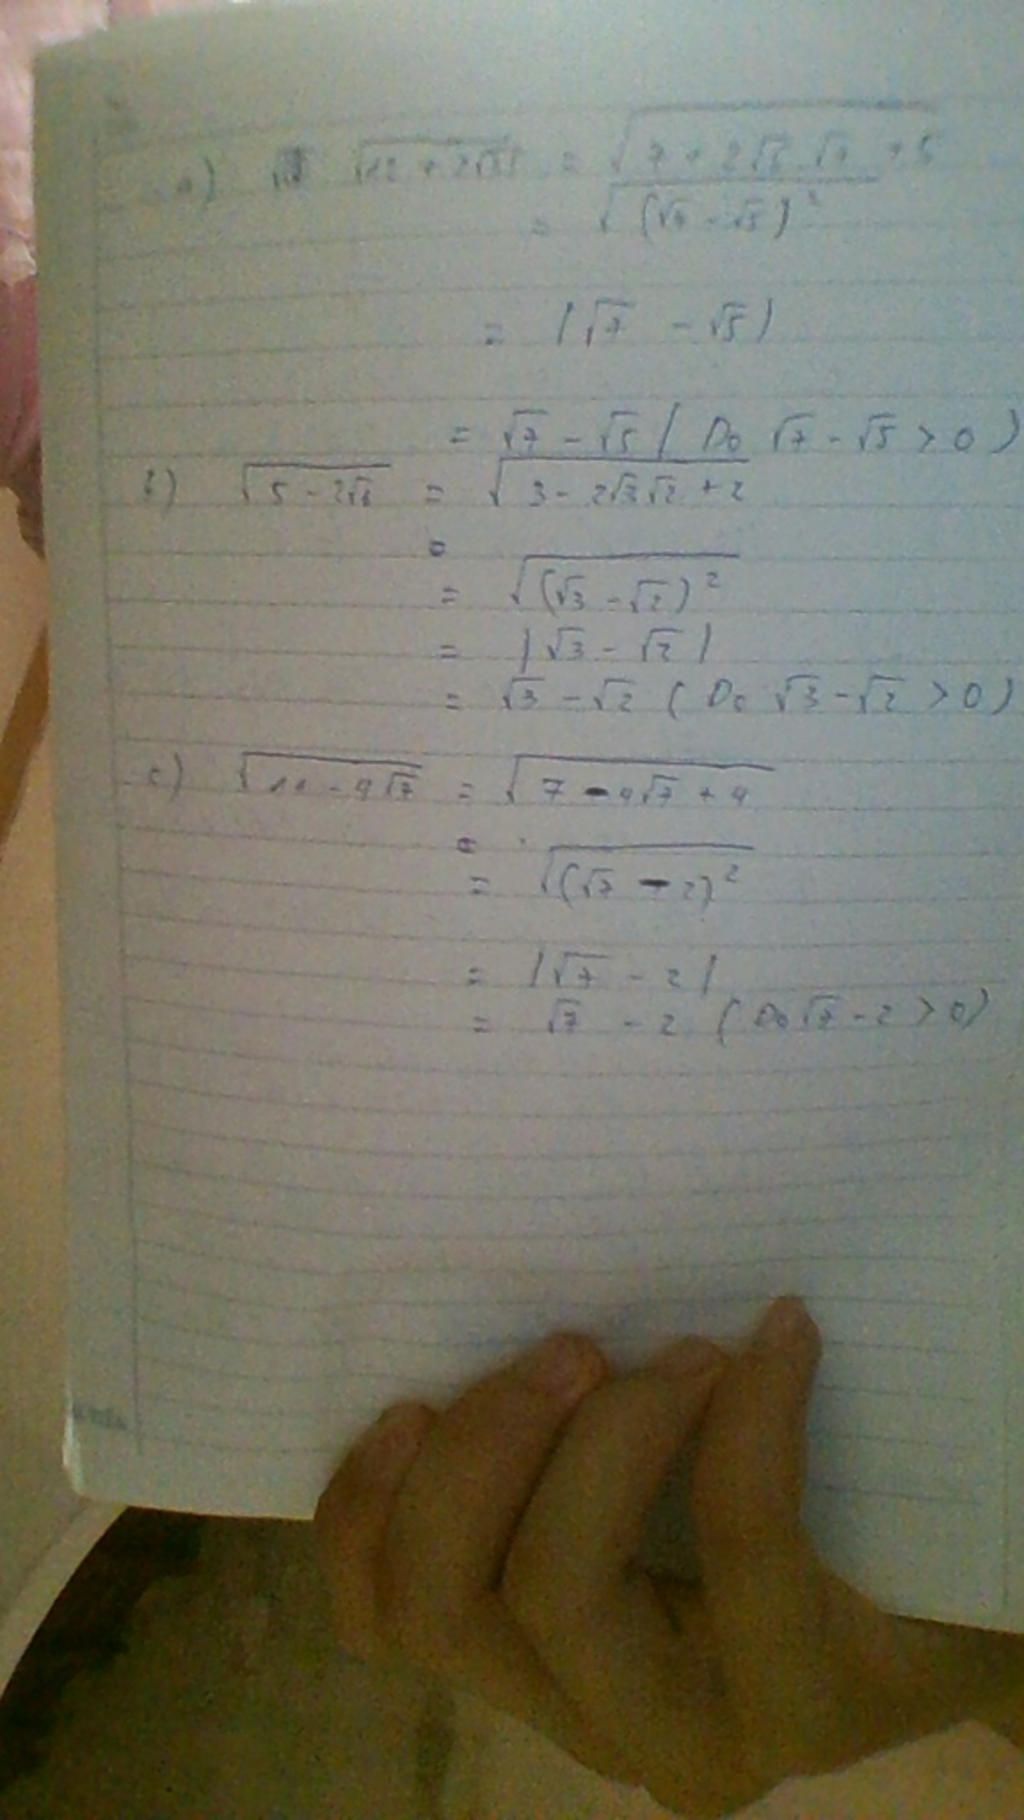 a) √(12 + 2√35) = √(7 + 2√5 √7 + 5)
= √((√7 - √5)²)
= |√7 - √5|
= √7 - √5 ( Do √7 - √5 > 0 )
b) √(5 - 2√6) = √(3 - 2√3√2 + 2)
=
= √((√3 - √2)²)
= |√3 - √2|
= √3 - √2 ( Do √3 - √2 > 0 )
c) √(11 - 4√7) = √(7 - 4√7 + 4)
=
= √((√7 - 2)²)
= |√7 - 2|
= √7 - 2 ( Do √7 - 2 > 0 )